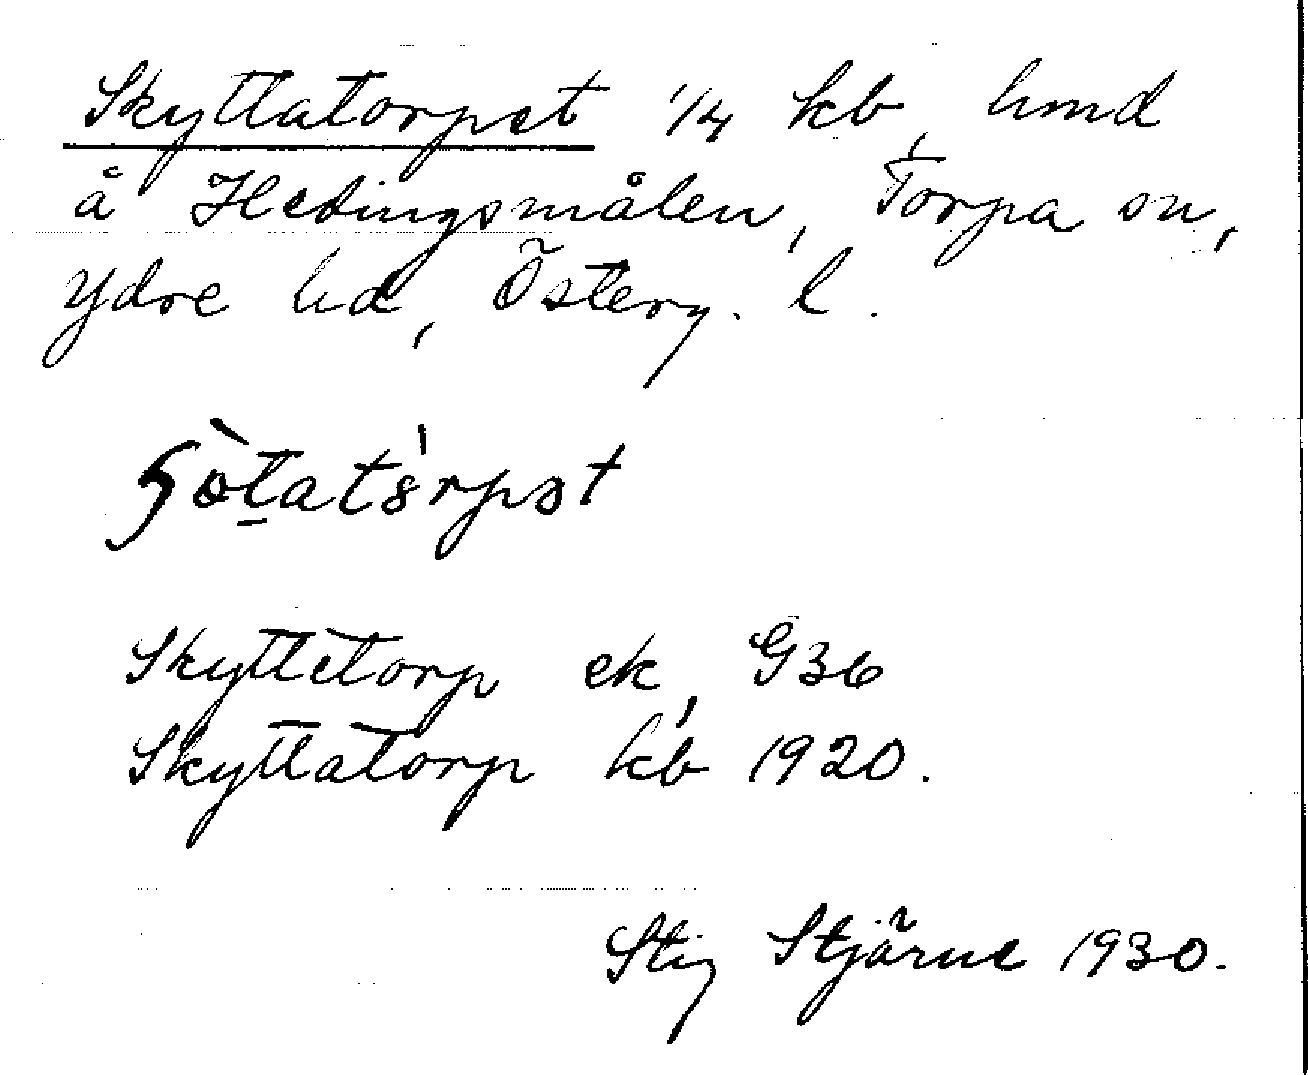 Skyttatorpet 1/4 kb, hmd
å Hedingsmålen, Torpa sn,
Ydre hd, Österg. l.
Skyttetorp ek, G36
Skyttatorp kb 1920.
Stig Stjärne 1930.